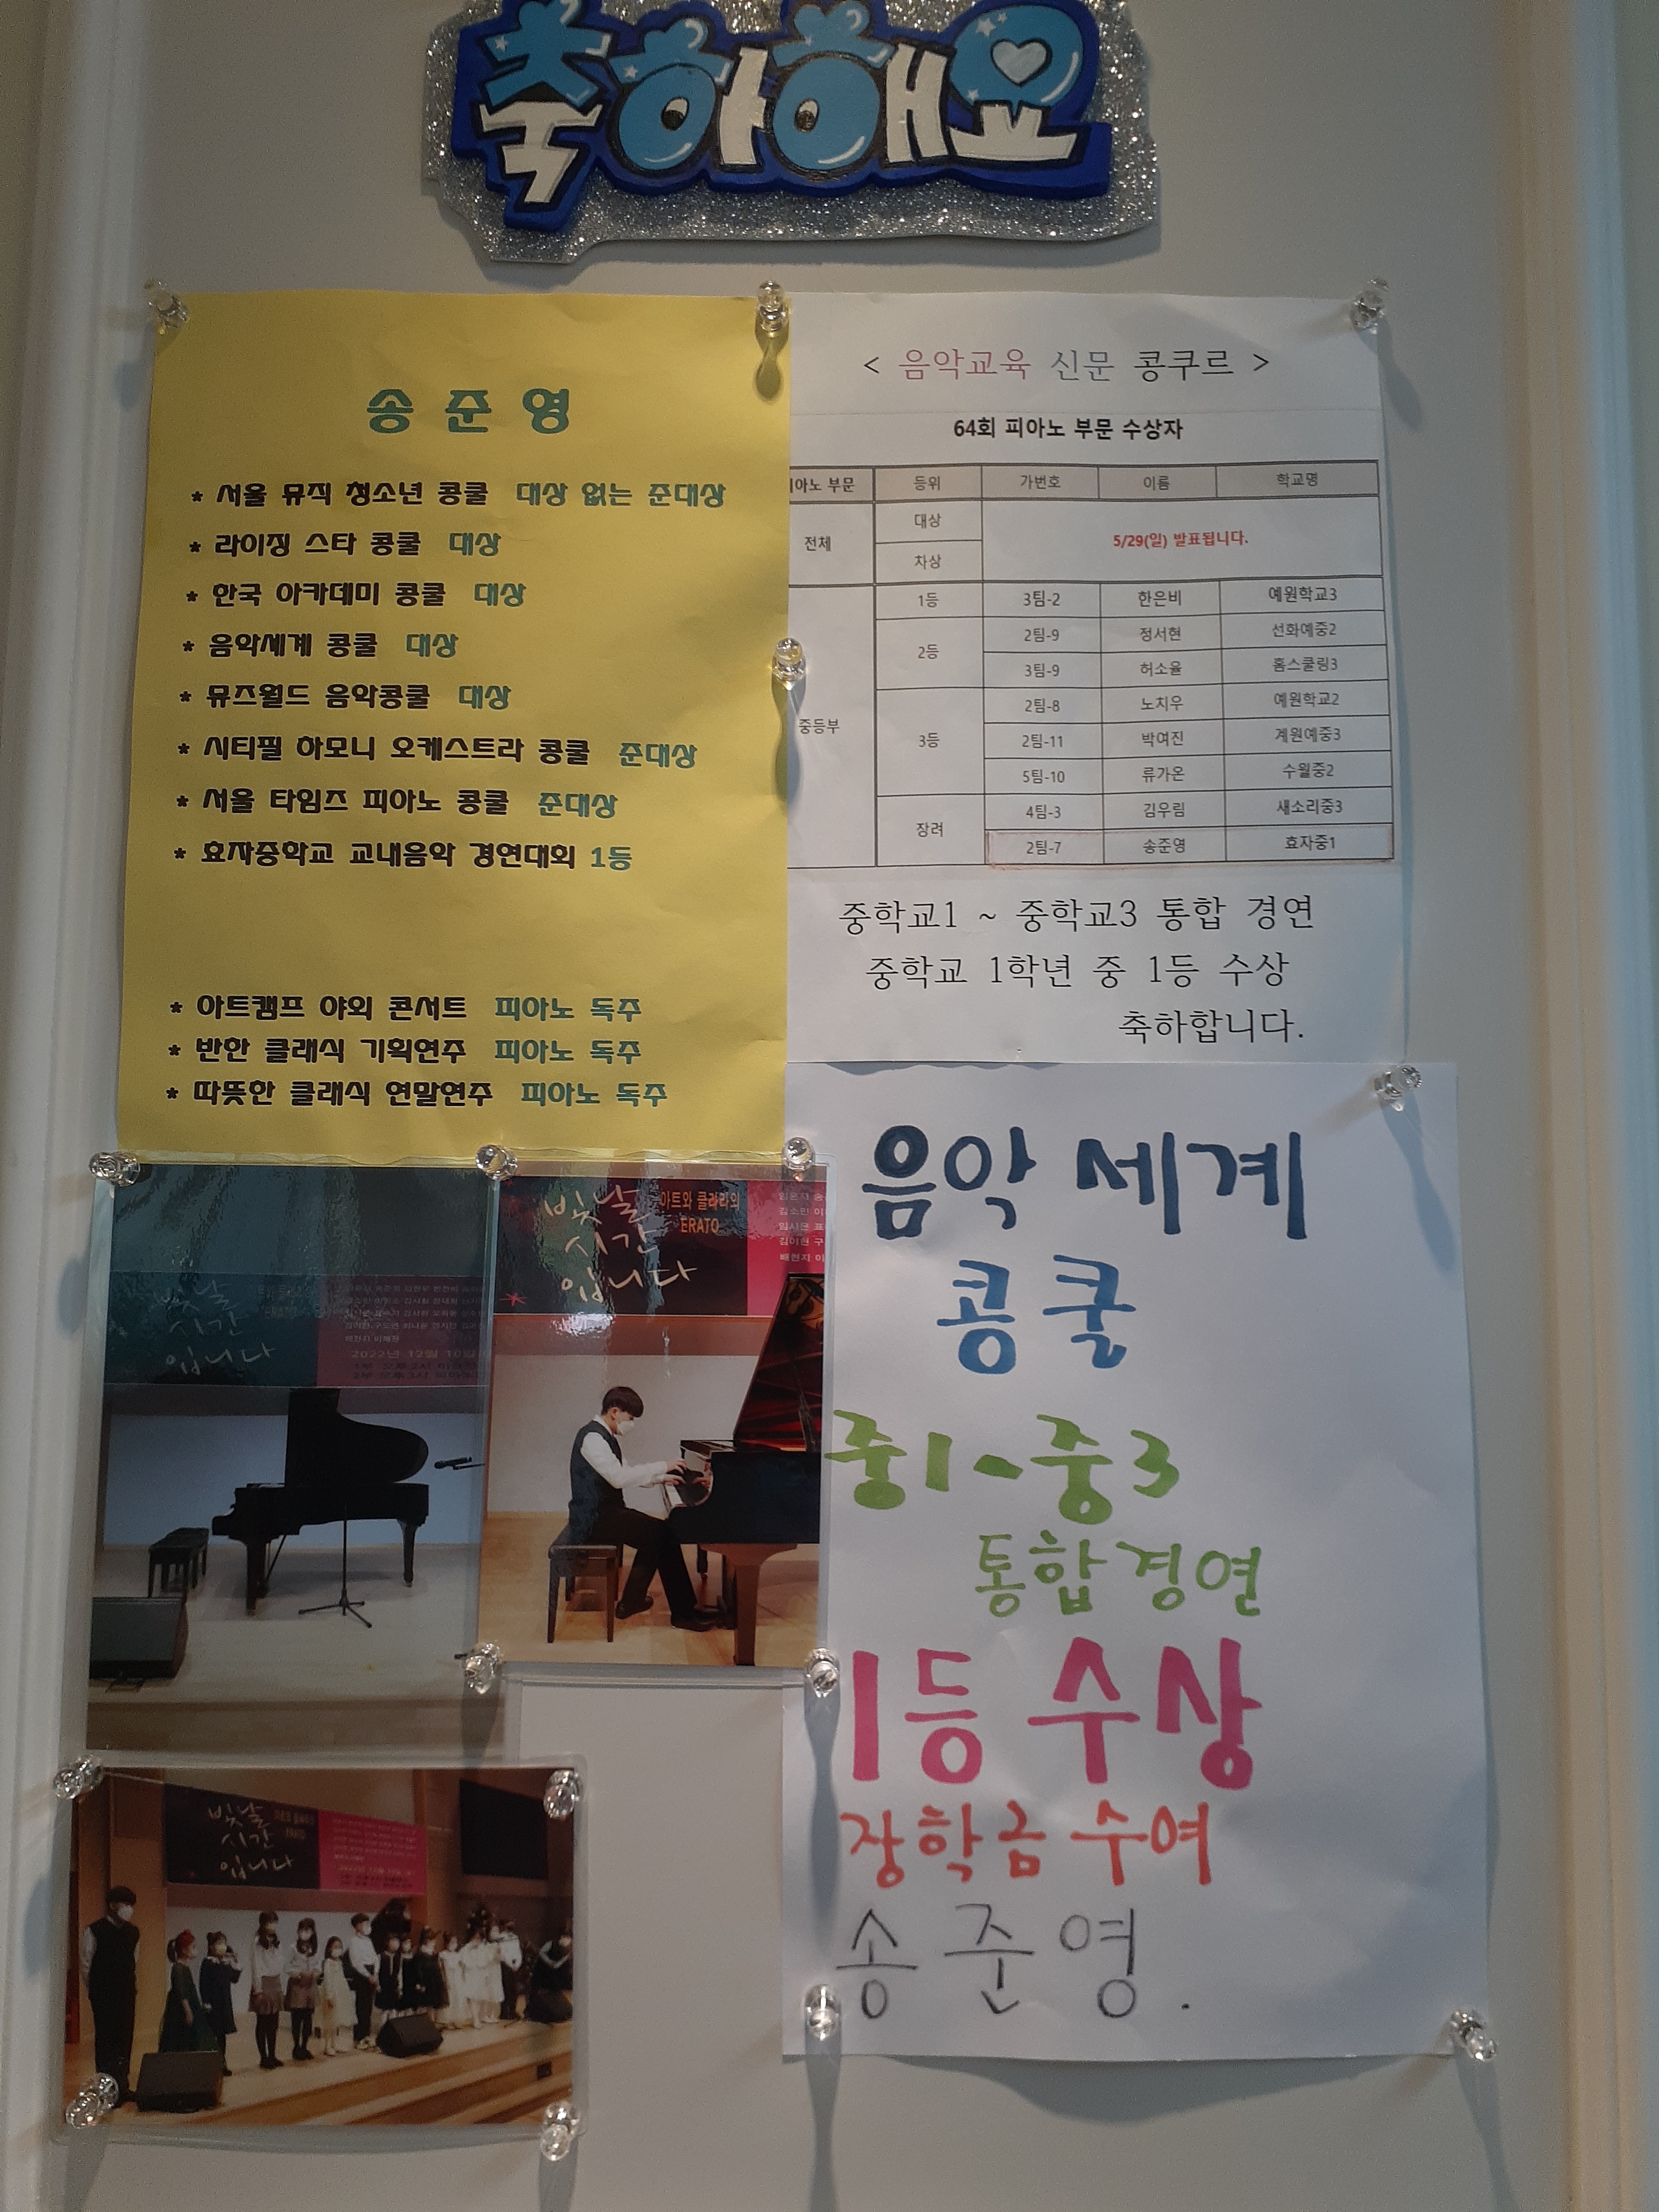 축하해요
송준영
* 서울 뮤직 청소년 콩쿨 대상 없는 준대상
* 라이징 스타 콩쿨 대상
* 한국 아카데미 콩쿨 대상
* 음악세계 콩쿨 대상
* 뮤즈월드 음악콩쿨 대상
* 시티필 하모니 오케스트라 콩쿨 준대상
* 서울 타임즈 피아노 콩쿨 준대상
* 효자중학교 교내음악 경연대회 1등
* 아트캠프 야외 콘서트 피아노 독주
* 반한 클래식 기획연주 피아노 독주
* 따뜻한 클래식 연말연주 피아노 독주
< 음악교육 신문 콩쿠르 >
64회 피아노 부문 수상자
아노 부문 등위 가번호 이름 학교명
전체 대상 5/29(일) 발표됩니다.
차상
중등부 1등 3팀-2 한은비 예원학교3
2등 2팀-9 정서현 선화예중2
3팀-9 허소율 홈스쿨링3
3등 2팀-8 노치우 예원학교2
2팀-11 박여진 계원예중3
5팀-10 류가온 수월중2
장려 4팀-3 김우림 새소리중3
2팀-7 송준영 효자중1
중학교1 ~ 중학교3 통합 경연
중학교 1학년 중 1등 수상
축하합니다.
빛날
시간
입니다
2022년 12월 10일
빛날
시간
입니다
아트와 클라라의
ERATO
빛날
시간
입니다
ERATO
음악세계
콩쿨
중1~중3
통합경연
1등 수상
장학금 수여
송준영.